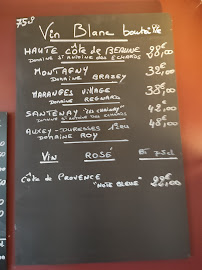 75cl
Vin Blanc bouteille
HAUTE CÔTE DE BEAUNE
DOMAINE ST ANTOINE DES ECHARDS
MONTAGNY 32,00
DOMAINE
MARANGES VILLAGE
DOMAINE REGNARD
SANTENAY 42,00
DOMAINE ST ANTOINE DES ECHARDS
AUXEY-DURESSES 1er cru 48,00
DOMAINE ROY
VIN ROSÉ 75cl
CÔTE DE PROVENCE
"NOTE BLEUE"